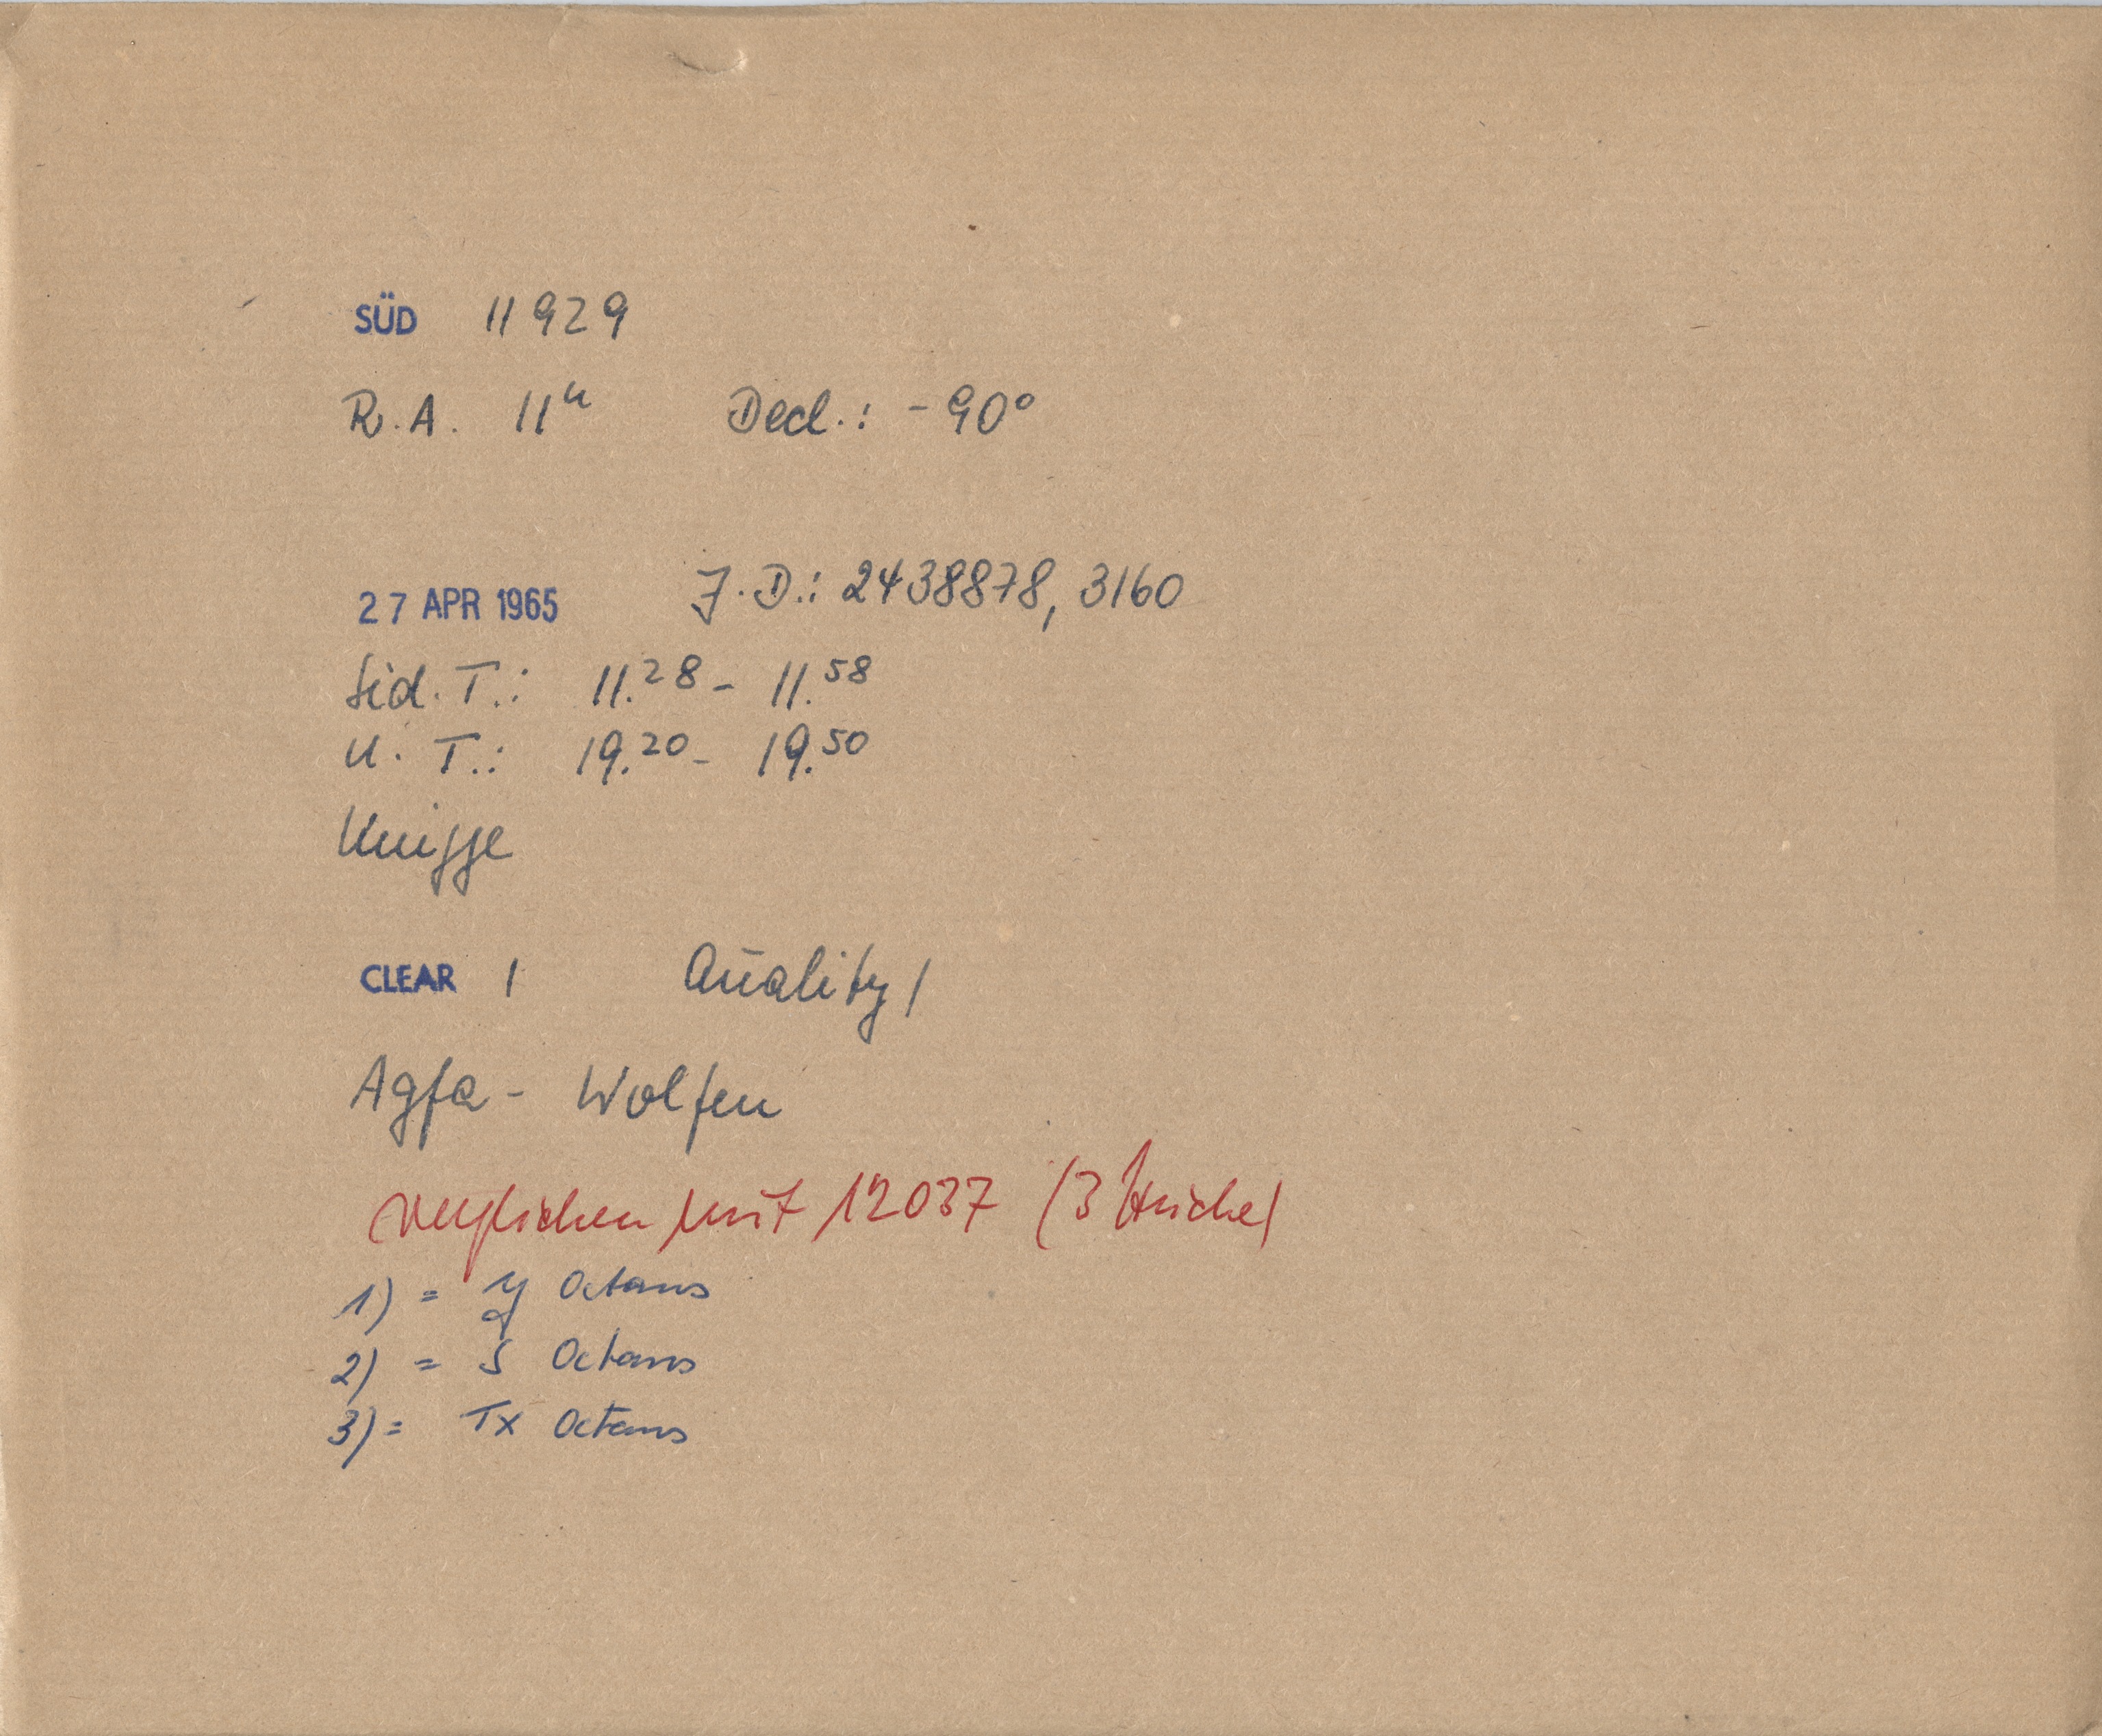 SÜD 11929
R.A. 11ʰ Decl.: -90°
27 APR 1965 J.D.: 2438878, 3160
Sid. T.: 11.²⁸ - 11.⁵⁸
U. T.: 19.²⁰ - 19.⁵⁰
Knigge
CLEAR 1 Quality 1
Agfa - Wolfen
verglichen mit 12037 (3 Striche)
1) = Octans
2) = S Octans
3) = TX Octans